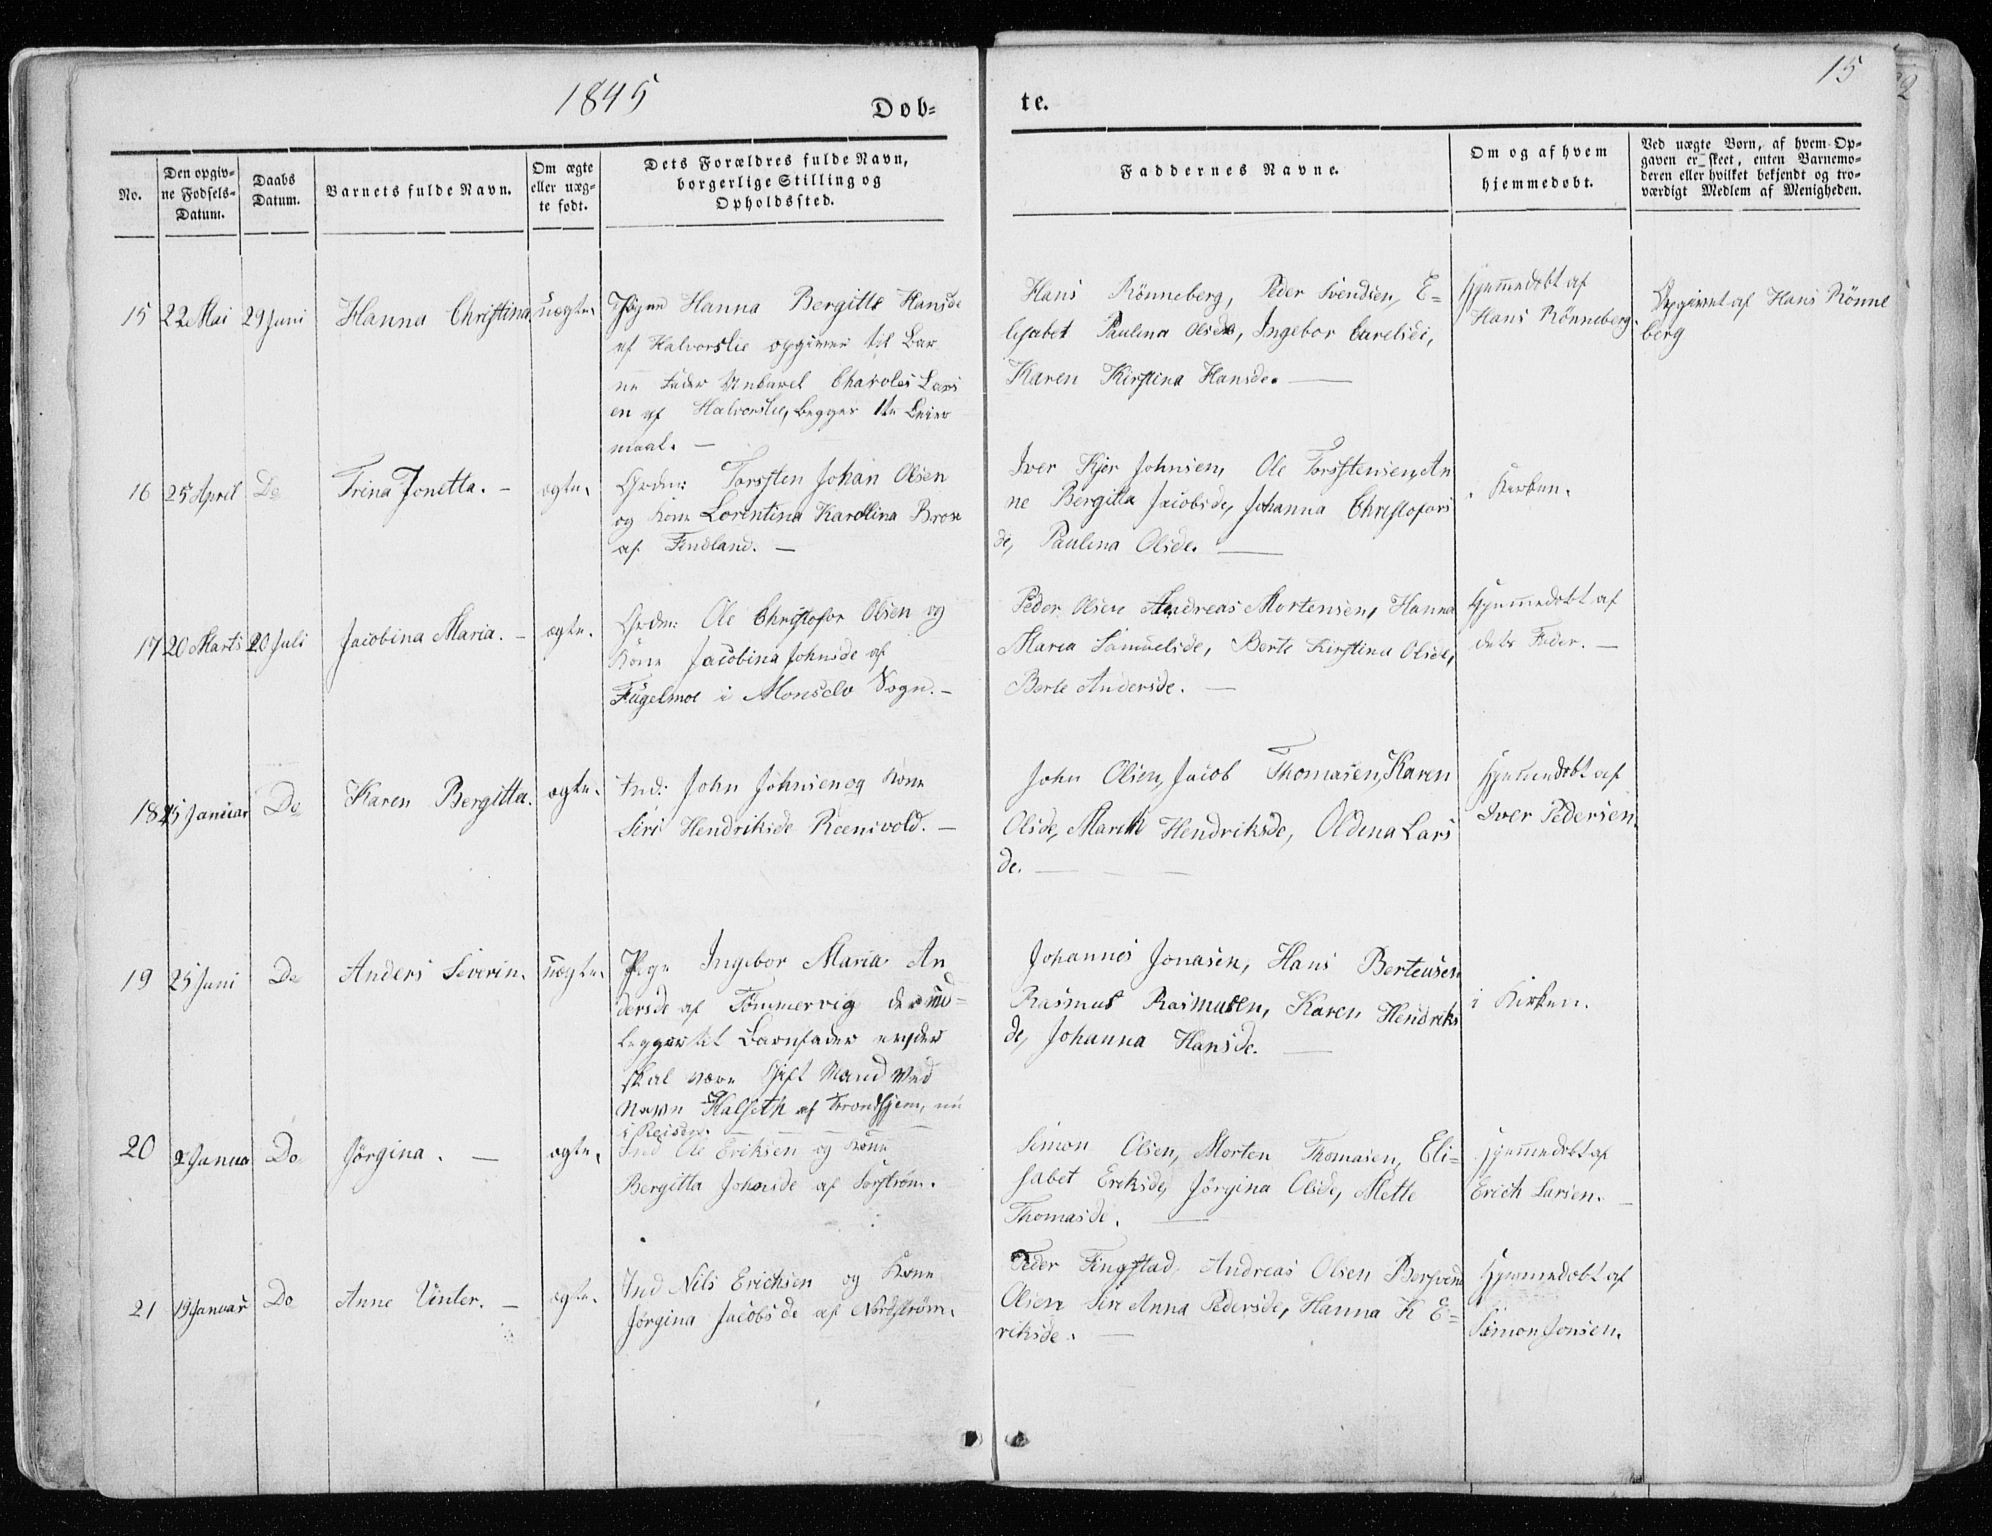 1845
15
Døb-
te.
No.
Den opgiv-
ne Fødsels-
Datum.
Daabs
Datum.
Barnets fulde Navn.
Om ægte
eller uæg-
te født.
Dets Forældres fulde Navn,
borgerlige Stilling og
Opholdssted.
Faddernes Navne.
Om og af hvem
hjemmedøbt.
Ved uægte Børn, af hvem Op-
gaven er skeet, enten Barnemo-
deren eller hvilket bekjendt og tro-
værdigt Medlem af Menigheden.
15
22 Mai
29 Juni
Hanna Christina
uægte.
Hanna Bergitte Hansde
af Halvorslie opgiver til Bar
ne Fader Unkarel Charoles Lars
en af Halvorslie, begges 1te Leier
maal. —
Hans Rönneberg, Peder Svendsen, E-
lisabet Paulina Olsde, Ingebor Carelsde,
Karen Kirstina Hansde. —
Hjemmedøbt af
Hans Rönneberg.
Opgivet af Hans Rönne
berg
16
25 April
Do
Trina Jonetta. —
ægte.
Grdm: Torsten Johan Olsen
og Kone Lorentina Karolina Brose
af Findland. —
Iver Kjer Johnsen, Ole Torstensen, An
ne Bergitta Jacobsde, Johanna Christofors
de, Paulina Olsde. —
i Kirken.
17
20 Marts
20 Juli
Jacobina Maria. —
ægte.
Grdm: Ole Christofor Olsen og
Kone Jacobina Johnsde af
Fugelmoe i Maaselv Sogn. —
Peder Olsen Andreas Mortensen, Hanna
Maria Samuelsde, Berte Kirstina Olsde,
Berte Andersde. —
Hjemmedøbt af
dets Fader. —
18
15 Januar
Do
Karen Bergitta.
ægte.
Ind: John Johnsen og Kone
Siri Hendriksde Roensvold. —
John Olsen, Jacob Thomasen, Karen
Olsde, Marith Hendriksde, Oldena Lars
de. —
Hjemmedøbt af
Iver Pedersen.
19
25 Juni
Do
Anders Severin.
uægte.
Pige Ingebor Maria An
dersde af Tömmervig der ud-
legger til Barnefader en, der
skal være Gift Mand ved
Navn Halseth af Trondhjem, nu
i Reisen.
Johannes Jonasen, Hans Bertensen
Rasmus Rasmusen, Karen Hendriks
de, Johanna Hansde. —
i Kirken.
20
2 Janua
Do
Jörgina. —
ægte.
Ind Ole Eriksen og Kone
Bergitta Johnsde af Sörstrøm.
Simon Olsen, Morten Thomasen, Eli-
sabet Eriksde, Jörgina Olsde, Mette
Thomasde. —
Hjemmedøbt af
Erich Larsen. —
21
19 Januar
Do
Anne Vinter. —
ægte.
Ind Nils Erichsen og Kone
Jörgina Jacobsde af Nordstrøm.
Peder Fingstad, Andreas Olsen Bersvend
Olsen Siri Anna Pedersde, Hanna K E-
riksde. —
Hjemmedøbt af
Simon Jonsen.